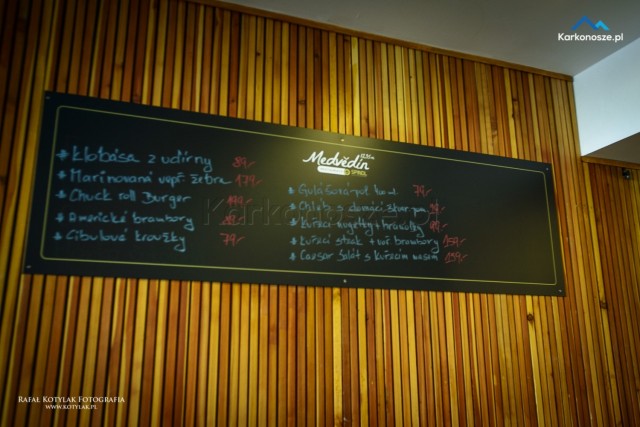 Karkonosze.pl
Medvědín
* Klobása z udírny 89,-
* Marinovaná vepř žebra 179,-
* Chuck roll Burger
* Americké brambory
* Cibulové kroužky 79,-
* Gulášová pol 79,-
* Chleb s domácí
* Kuřecí nugetky + hranolky 99,-
* Kuřecí steak + vař brambory 159,-
* Caesar Salát s Kuřecím masem 159,-
Karkonosze.pl
RAFAŁ KOTYLAK FOTOGRAFIA
WWW.KOTYLAK.PL